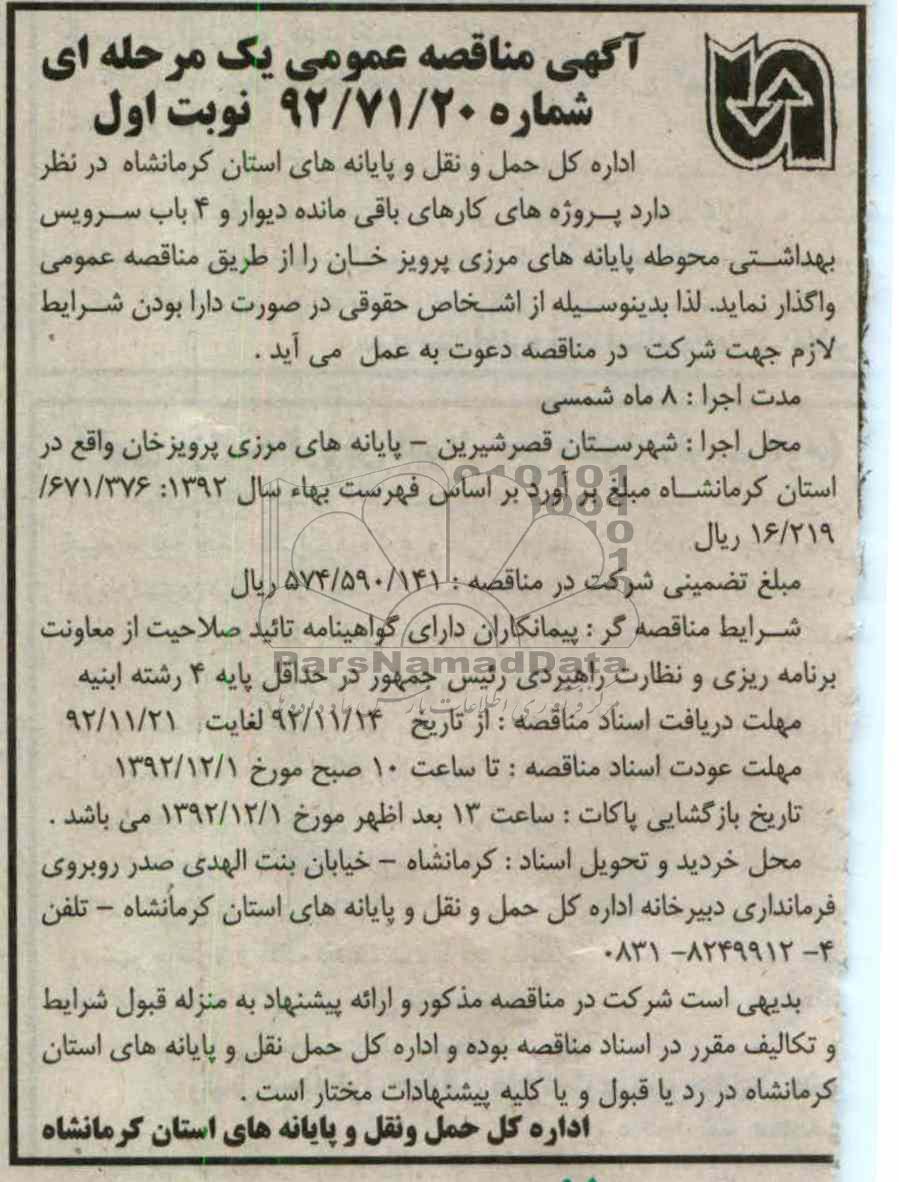 آگهی مناقصه عمومی یک مرحله ای
شماره ۹۲/۷۱/۲۰ نوبت اول
اداره کل حمل و نقل و پایانه های استان کرمانشاه در نظر
دارد پروژه های کارهای باقی مانده دیوار و ۴ باب سرویس
بهداشتی محوطه پایانه های مرزی پرویز خان را از طریق مناقصه عمومی
واگذار نماید. لذا بدینوسیله از اشخاص حقوقی در صورت دارا بودن شرایط
لازم جهت شرکت در مناقصه دعوت به عمل می آید .
مدت اجرا : ۸ ماه شمسی
محل اجرا : شهرستان قصرشیرین – پایانه های مرزی پرویزخان واقع در
استان کرمانشاه مبلغ بر آورد بر اساس فهرست بهاء سال ۱۳۹۲: ۶۷۱/۳۷۶/
۱۶/۲۱۹ ریال
مبلغ تضمینی شرکت در مناقصه : ۵۷۴/۵۹۰/۱۴۱ ریال
شرایط مناقصه گر : پیمانکاران دارای گواهینامه تائید صلاحیت از معاونت
برنامه ریزی و نظارت راهبردی رئیس جمهور در حداقل پایه ۴ رشته ابنیه
ParsNamadData
مهلت دریافت اسناد مناقصه : از تاریخ ۹۲/۱۱/۱۴ لغایت ۹۲/۱۱/۲۱
مهلت عودت اسناد مناقصه : تا ساعت ۱۰ صبح مورخ ۱۳۹۲/۱۲/۱
تاریخ بازگشایی پاکات : ساعت ۱۳ بعد اظهر مورخ ۱۳۹۲/۱۲/۱ می باشد .
محل خردید و تحویل اسناد : کرمانشاه – خیابان بنت الهدی صدر روبروی
فرمانداری دبیرخانه اداره کل حمل و نقل و پایانه های استان کرمانشاه – تلفن
۴- ۸۲۴۹۹۱۲- ۰۸۳۱
بدیهی است شرکت در مناقصه مذکور و ارائه پیشنهاد به منزله قبول شرایط
و تکالیف مقرر در اسناد مناقصه بوده و اداره کل حمل نقل و پایانه های استان
کرمانشاه در رد یا قبول و یا کلیه پیشنهادات مختار است .
اداره کل حمل ونقل و پایانه های استان کرمانشاه